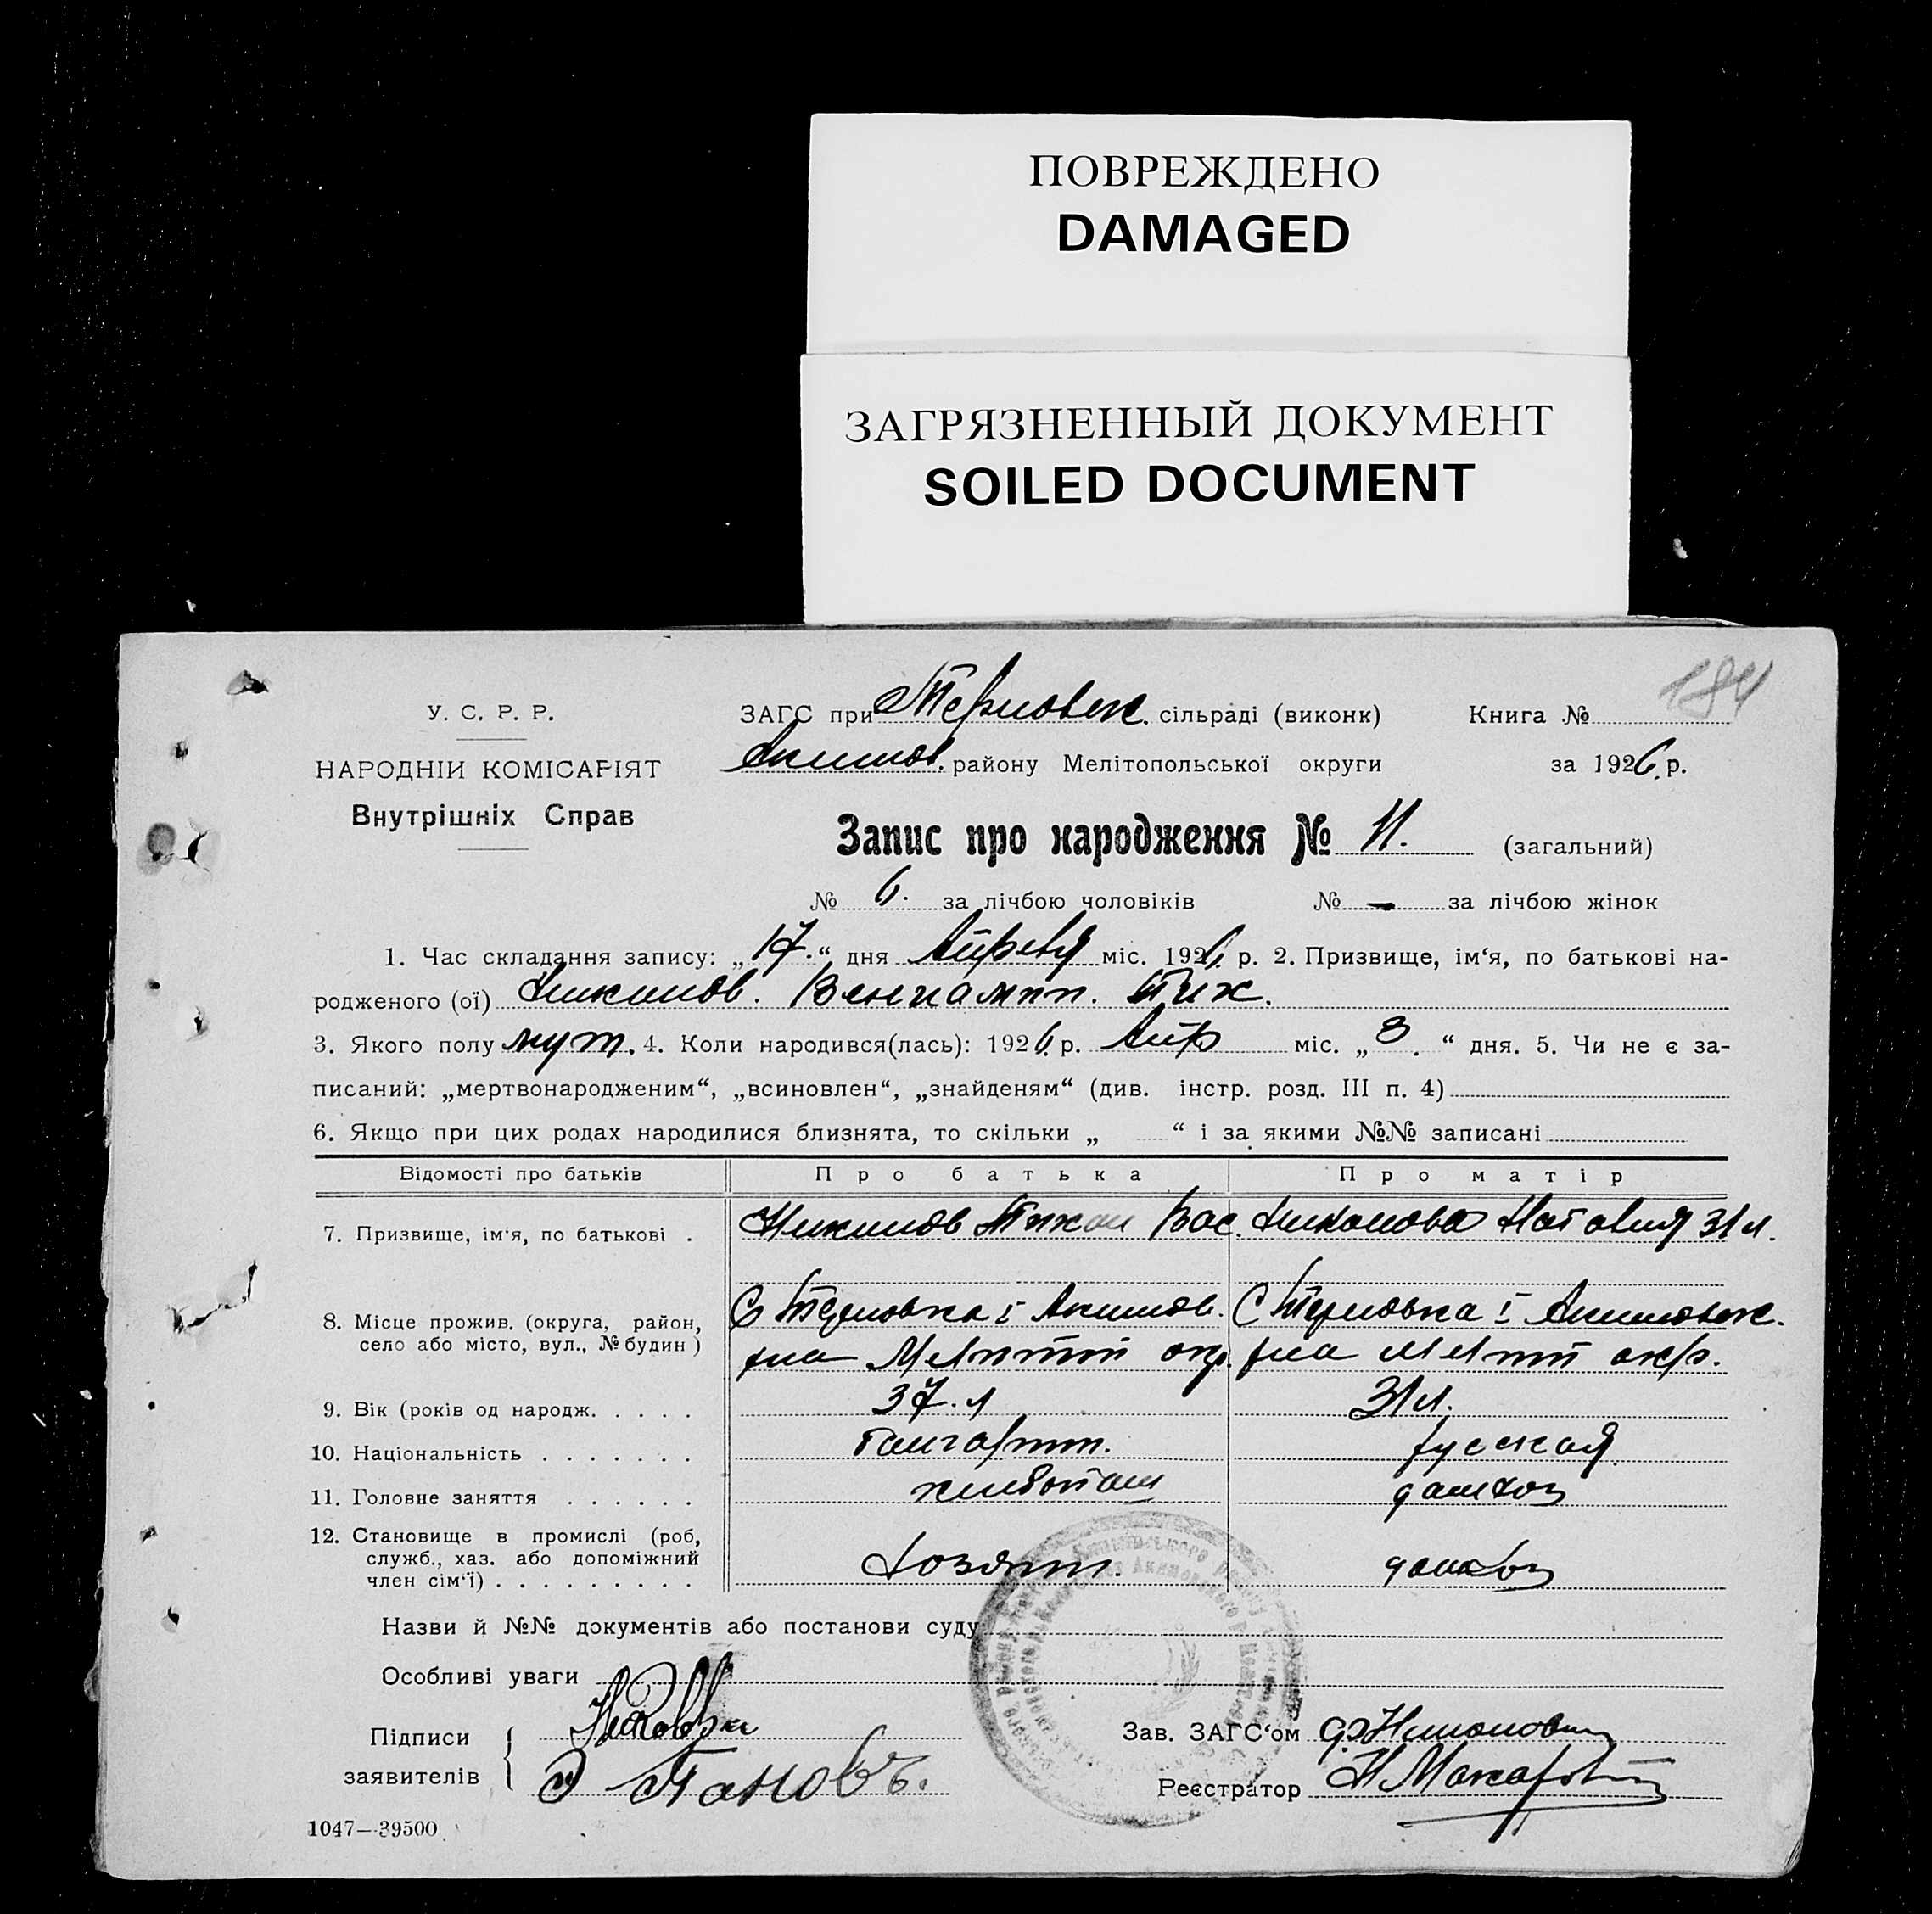 ПОВРЕЖДЕНО
DAMAGED
ЗАГРЯЗНЕННЫЙ ДОКУМЕНТ
SOILED DOCUMENT
184
У. С. Р. Р.
ЗАГС при Терновск. сільраді (виконк) Книга №
НАРОДНІЙ КОМІСАРІЯТ
Акимов. району Мелітопольської округи за 1926. р.
Внутрішніх Справ
Запис про народження № 11. (загальний)
№ 6. за лічбою чоловіків № - за лічбою жінок
1. Час складання запису: „17.“ дня Апреля міс. 1926. р. 2. Призвище, ім‘я, по батькові на-
родженого (ої) Вениамин. Тих.
3. Якого полу муж. 4. Коли народився(лась): 1926. р. Апр міс. „8.“ дня. 5. Чи не є за-
писаний: „мертвонародженим“, „всиновлен“, „знайденям“ (див. інстр. розд. III п. 4)
6. Якщо при цих родах народилися близнята, то скільки „ “ і за якими №№ записані
Відомості про батьків Про батька Про матір
7. Призвище, ім‘я, по батькові . Тихон Вас. Наталия 31 л.
8. Місце прожив. (округа, район, С Терновка I Акимов. С Терновка I Акимовск.
село або місто, вул., № будин) р-на Мелитоп окр. р-на Мелитоп окр.
9. Вік (років од народж. . . . . 37. л 31 л.
10. Національність . . . . . . . болгарин. русская
11. Головне заняття . . . . . . хлибопаш домхоз
12. Становище в промислі (роб,
служб., хаз. або допоміжний
член сім‘ї) . . . . . . . . . хозяин. домхоз
Назви й №№ документів або постанови суду
Особливі уваги
Підписи
Зав. ЗАГС‘ом
заявителів Пановъ.
Реєстратор Н Макаров
1047—39500